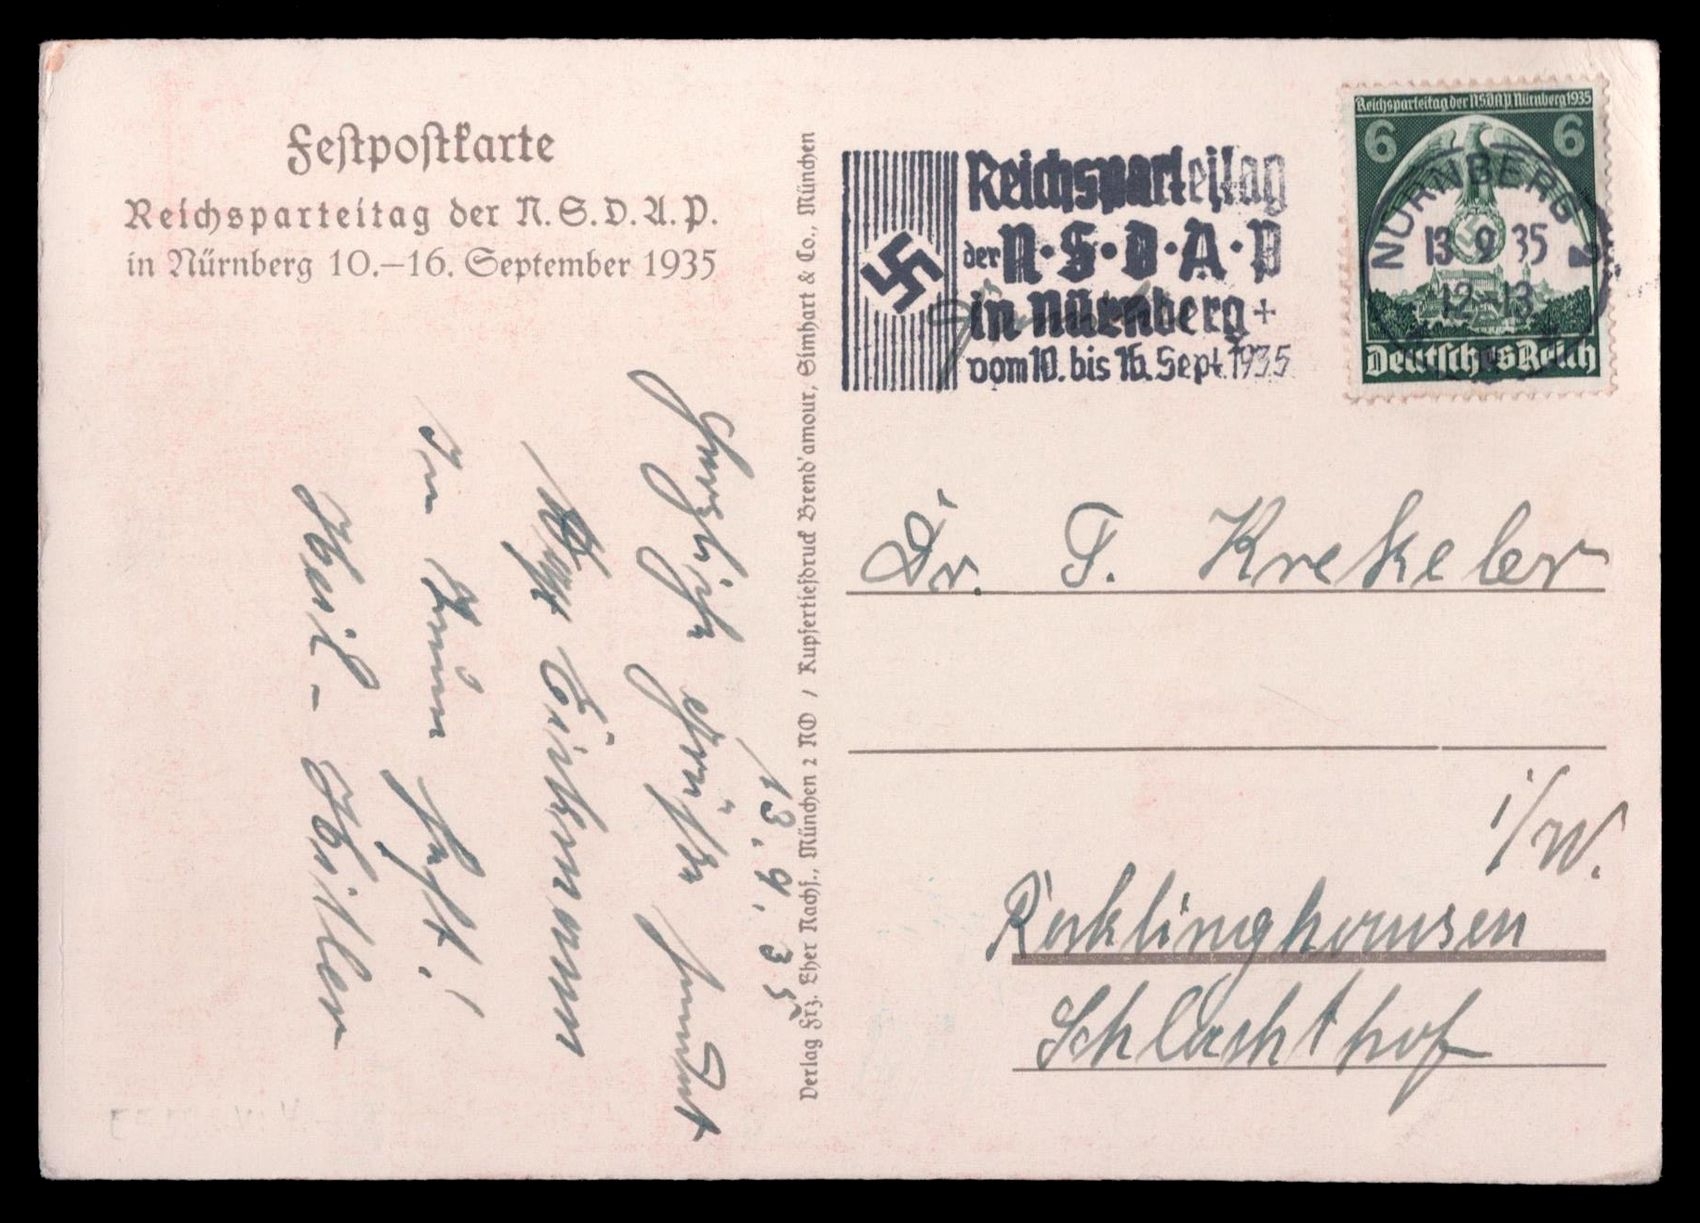 Festpostkarte
Reichsparteitag der N.S.D.A.P.
in Nürnberg 10.–16. September 1935
13. 9. 35
Herzlichste Grüße sendet
Heil - Hitler
Verlag Frz. Eher Nachf., München 2 NO / Kupfertiefdruck Brend'amour, Simhart & Co., München
Reichsparteitag
der N·S·D·A·P
in Nürnberg +
vom 10. bis 16. Sept. 1935
Reichsparteitag der NSDAP Nürnberg 1935
6 6
NÜRNBERG 2
13 9 35
12-13
Deutsches Reich
Dr. F. Krekeler
i/W.
Recklinghausen
Schlachthof